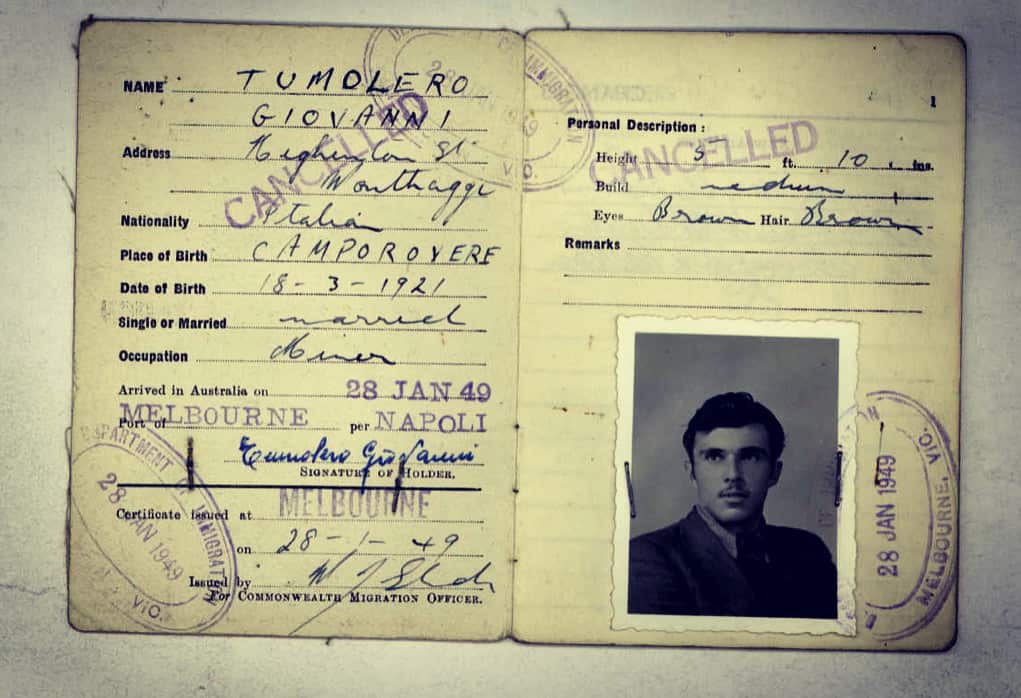 NAME TUMOLERO
GIOVANNI
Address St
Wonthaggi
Nationality Italian
Place of Birth CAMPOROVERE
Date of Birth 18-3-1921
Single or Married married
Occupation Miner
Arrived in Australia on 28 JAN 49
Port of MELBOURNE per NAPOLI
Tumolero Giovanni
SIGNATURE OF HOLDER.
Certificate issued at MELBOURNE
on 28-1-49
Issued by
For COMMONWEALTH MIGRATION OFFICER.
CANCELLED
DEPARTMENT OF IMMIGRATION
28 JAN 1949
VIC.
IMMIGRATION
VIC.
1
Personal Description:
Height 5 ft. 10 ins.
Build medium
Eyes Brown Hair Brown
Remarks
CANCELLED
28 JAN 1949
MELBOURNE, VIC.